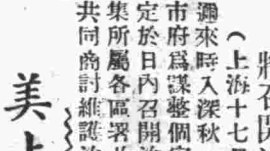 將召開
（上海十七日
邇來時入深秋
市府爲謀整個
定於日內召開
集所屬各區署
共同商討維護
美上